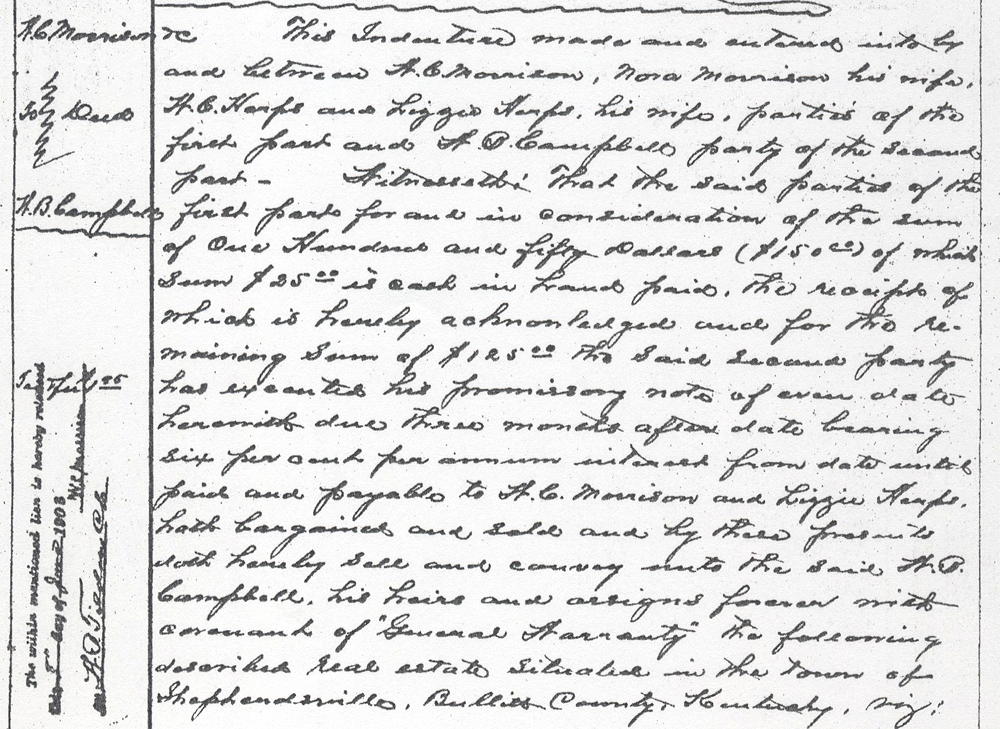 H.C. Morrison &c
To } Deed
H.B. Campbell
This Indenture made and entered into by
and between H.C. Morrison, Nora Morrison his wife,
H.C. Harps and Lizzie Harps, his wife, parties of the
first part and H.B. Campbell party of the second
part - Witnesseth: That the said parties of the
first part for and in consideration of the sum
of One Hundred and fifty Dollars ($150.00) of which
sum $25.00 is cash in hand paid, the receipt of
which is hereby acknowledged and for the re-
maining sum of $125.00 the said second party
has executed his promissory note of even date
herewith due three months after date bearing
six per cent per annum interest from date until
paid and payable to H.C. Morrison and Lizzie Harps.
hath bargained and sold and by these presents
doth hereby sell and convey unto the said H.B.
Campbell, his heirs and assigns forever with
covenant of "General Warranty" the following
described real estate situated in the town of
Shepherdsville, Bullitt County, Kentucky, viz:
The within mentioned lien is hereby released
day of June 1903